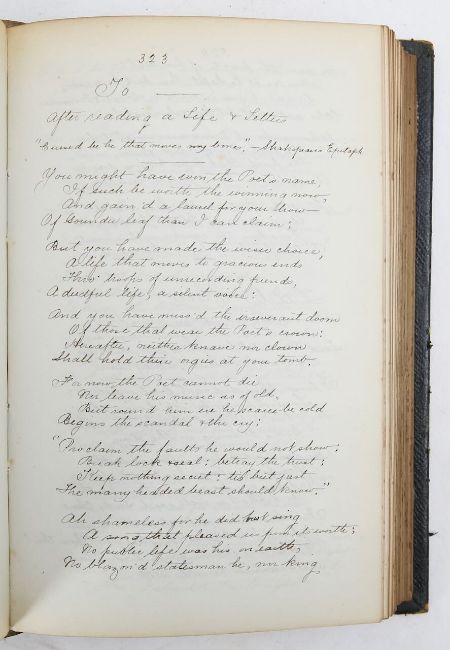 323
To ———
After reading a Life & Letters
"Cursed be he that moves my bones". – Shakspeare's Epitaph
You might have won the Poet's name,
If such be worth the winning now,
And gain'd a laurel for your brow
Of sounder leaf than I can claim;
But you have made the wiser choice,
A life that moves to gracious ends
Thro' troops of unrecording friends,
A deedful life, a silent voice:
And you have miss'd the irreverent doom
Of those that wear the Poet's crown:
Hereafter, neither knave nor clown
Shall hold their orgies at your tomb.
For now the Poet cannot die
Nor leave his music as of old,
But round him ere he scarce be cold
Begins the scandal & the cry:
"Proclaim the faults he would not show:
Break lock & seal: betray the trust:
Keep nothing secret: 'tis but just
The many headed beast should know."
Ah shameless for he did but sing
A song, that pleased us from its worth;
No public life was his on earth,
No blazon'd statesman he, nor king